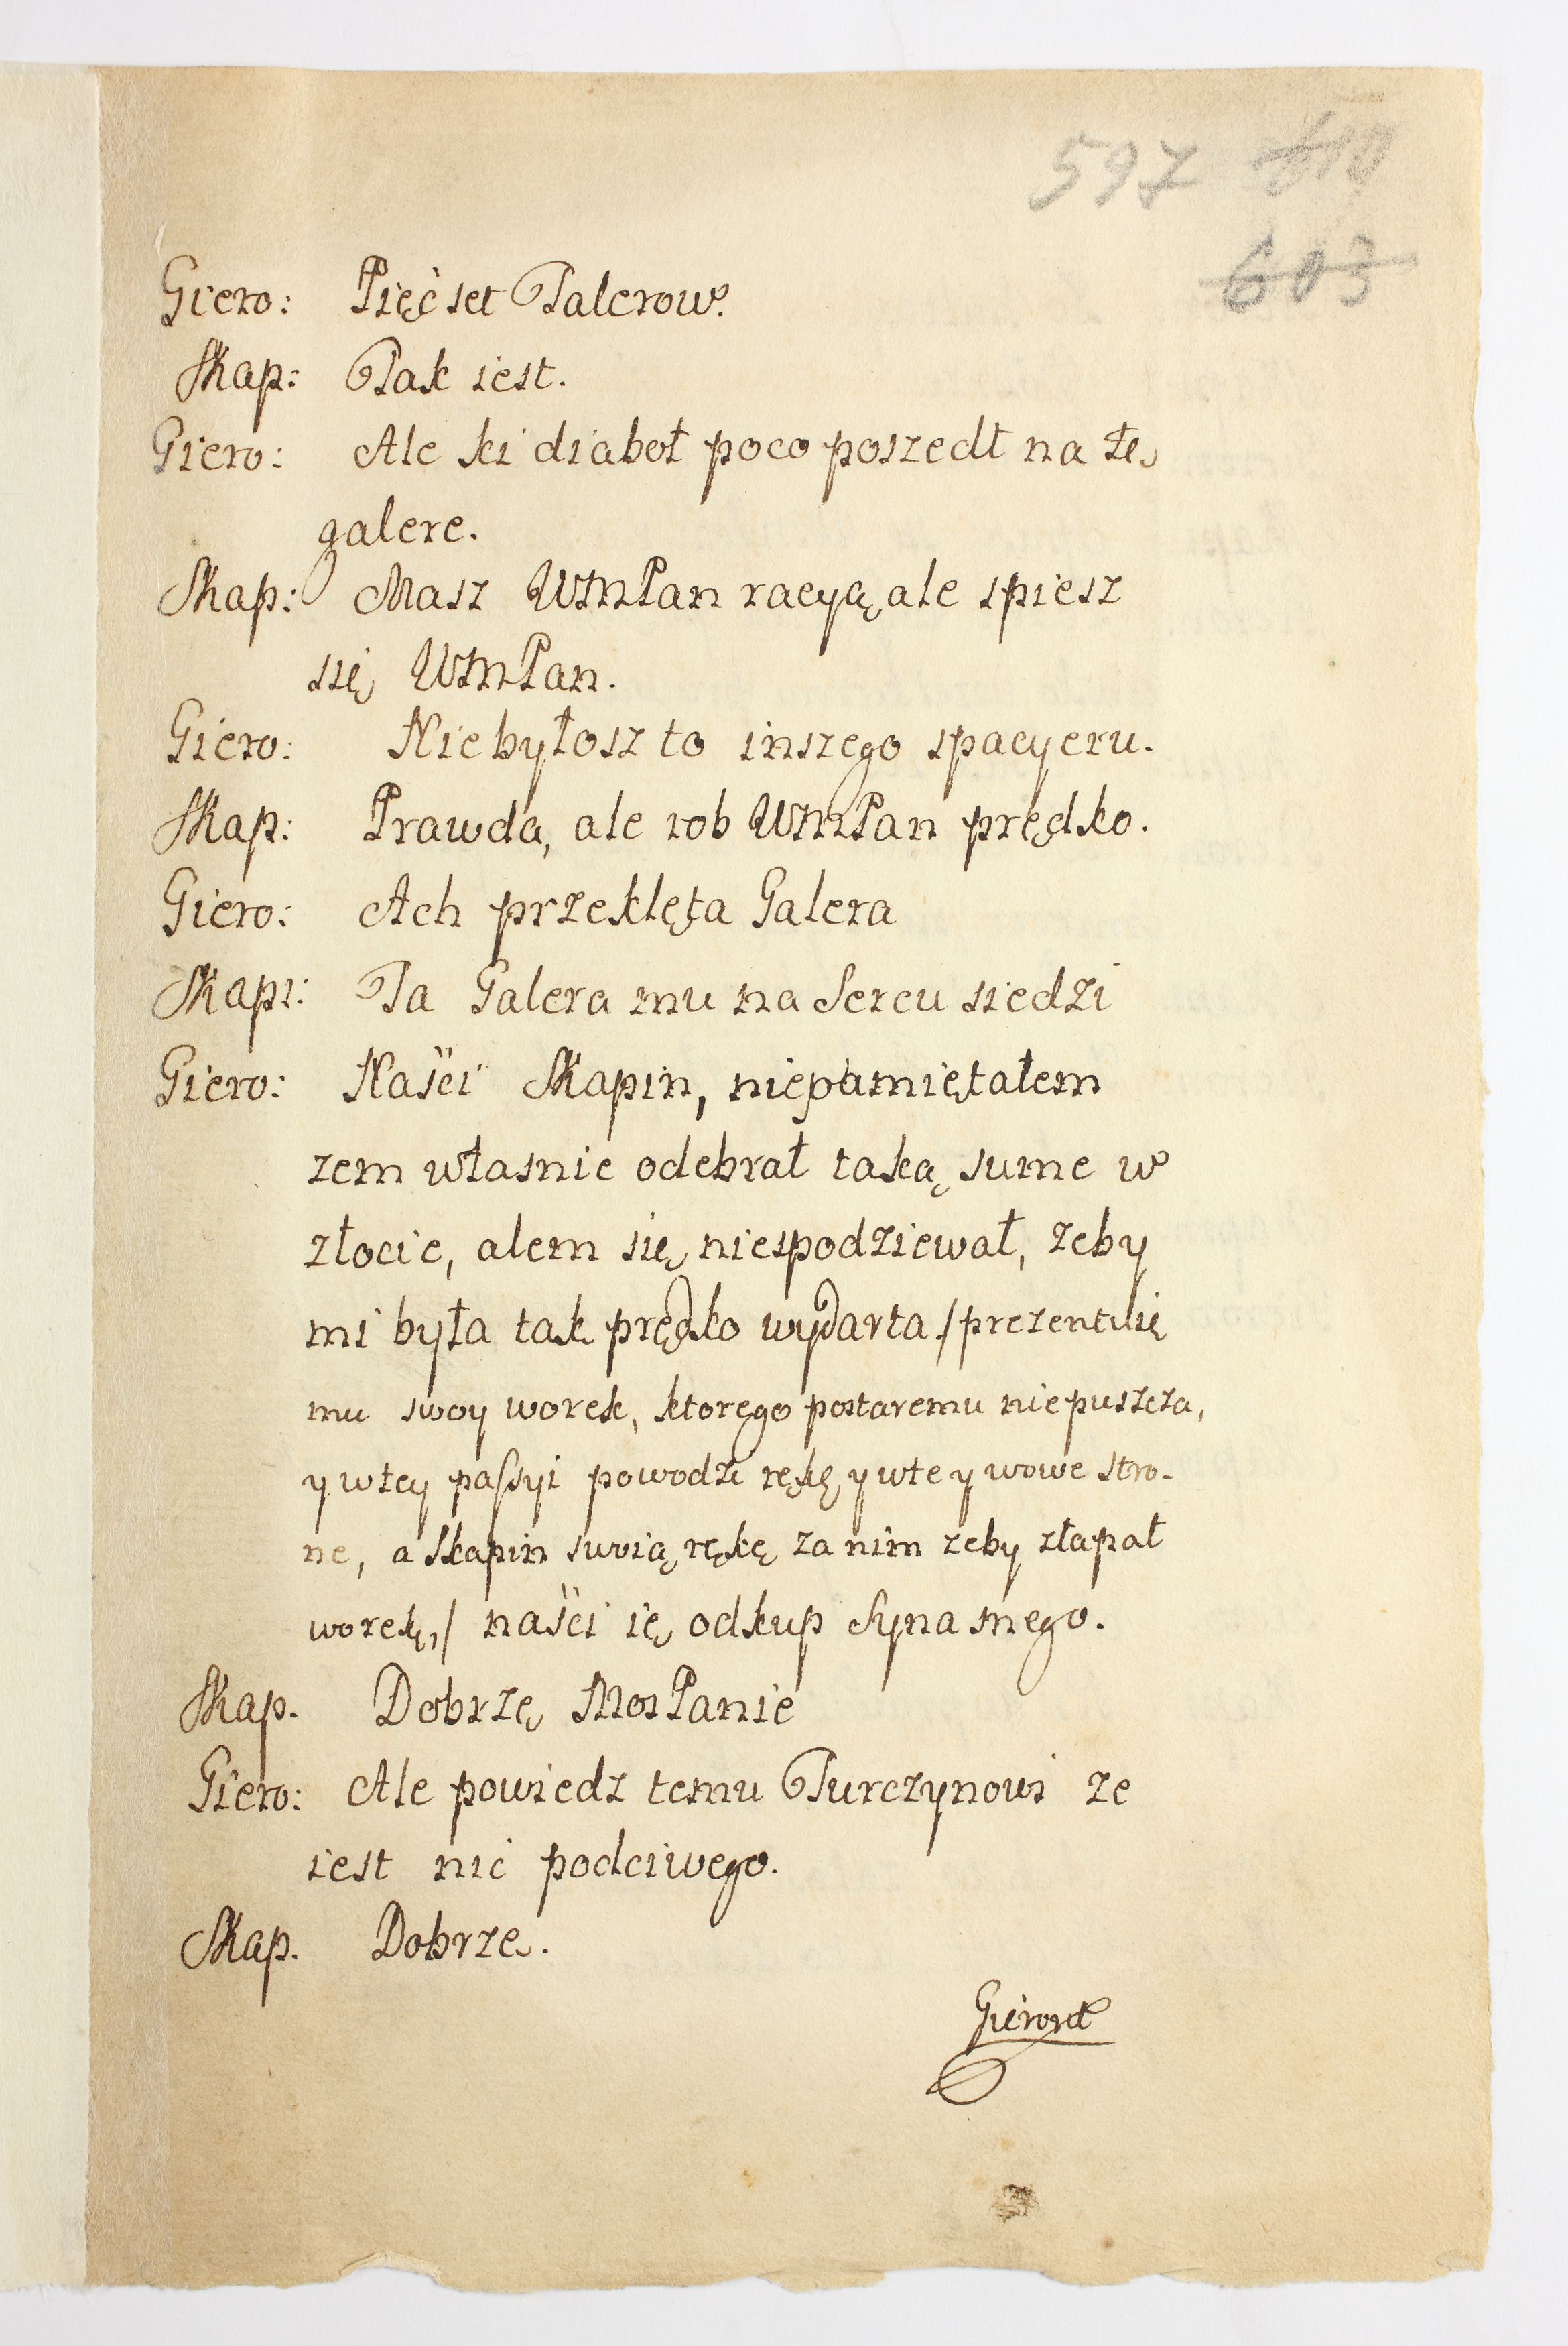 597 610
603
Giero: Pięć set Talerow.
Skap: Tak iest.
Giero: Ale ki diaboł poco poszedł na tę
galere.
Skap: Masz WMPan racyą, ale spiesz
się WMPan.
Giero: Niebyłosz to inszego spacyeru.
Skap: Prawda, ale rob WMPan prędko.
Giero: Ach przeklęta Galera
Skapi: Ta Galera mu na Sercu siedzi
Giero: Naści Skapin, niepamiętałem
zem własnie odebrał taką sume w
złocie, alem się niespodziewał, żeby
mi była tak prędko wydarta /prezentuię
mu swoy worek, ktorego postaremu niepuszcza,
y wtey passyi powodzi ręką y wte y wowe stro-
ne, a Skapin swoią rękę za nim zeby złapał
worek,/ naści ię odkup Syna mego.
Skap. Dobrzę MosPanie
Giero: Ale powiedz temu Turczynowi ze
iest nic podciwego.
Skap. Dobrze.
Gieront